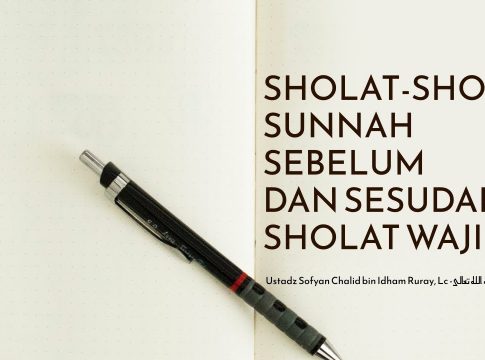 SHOLAT-SHO
SUNNAH
SEBELUM
DAN SESUDAH
SHOLAT WAJI
Ustadz Sofyan Chalid bin Idham Ruray, Lc -